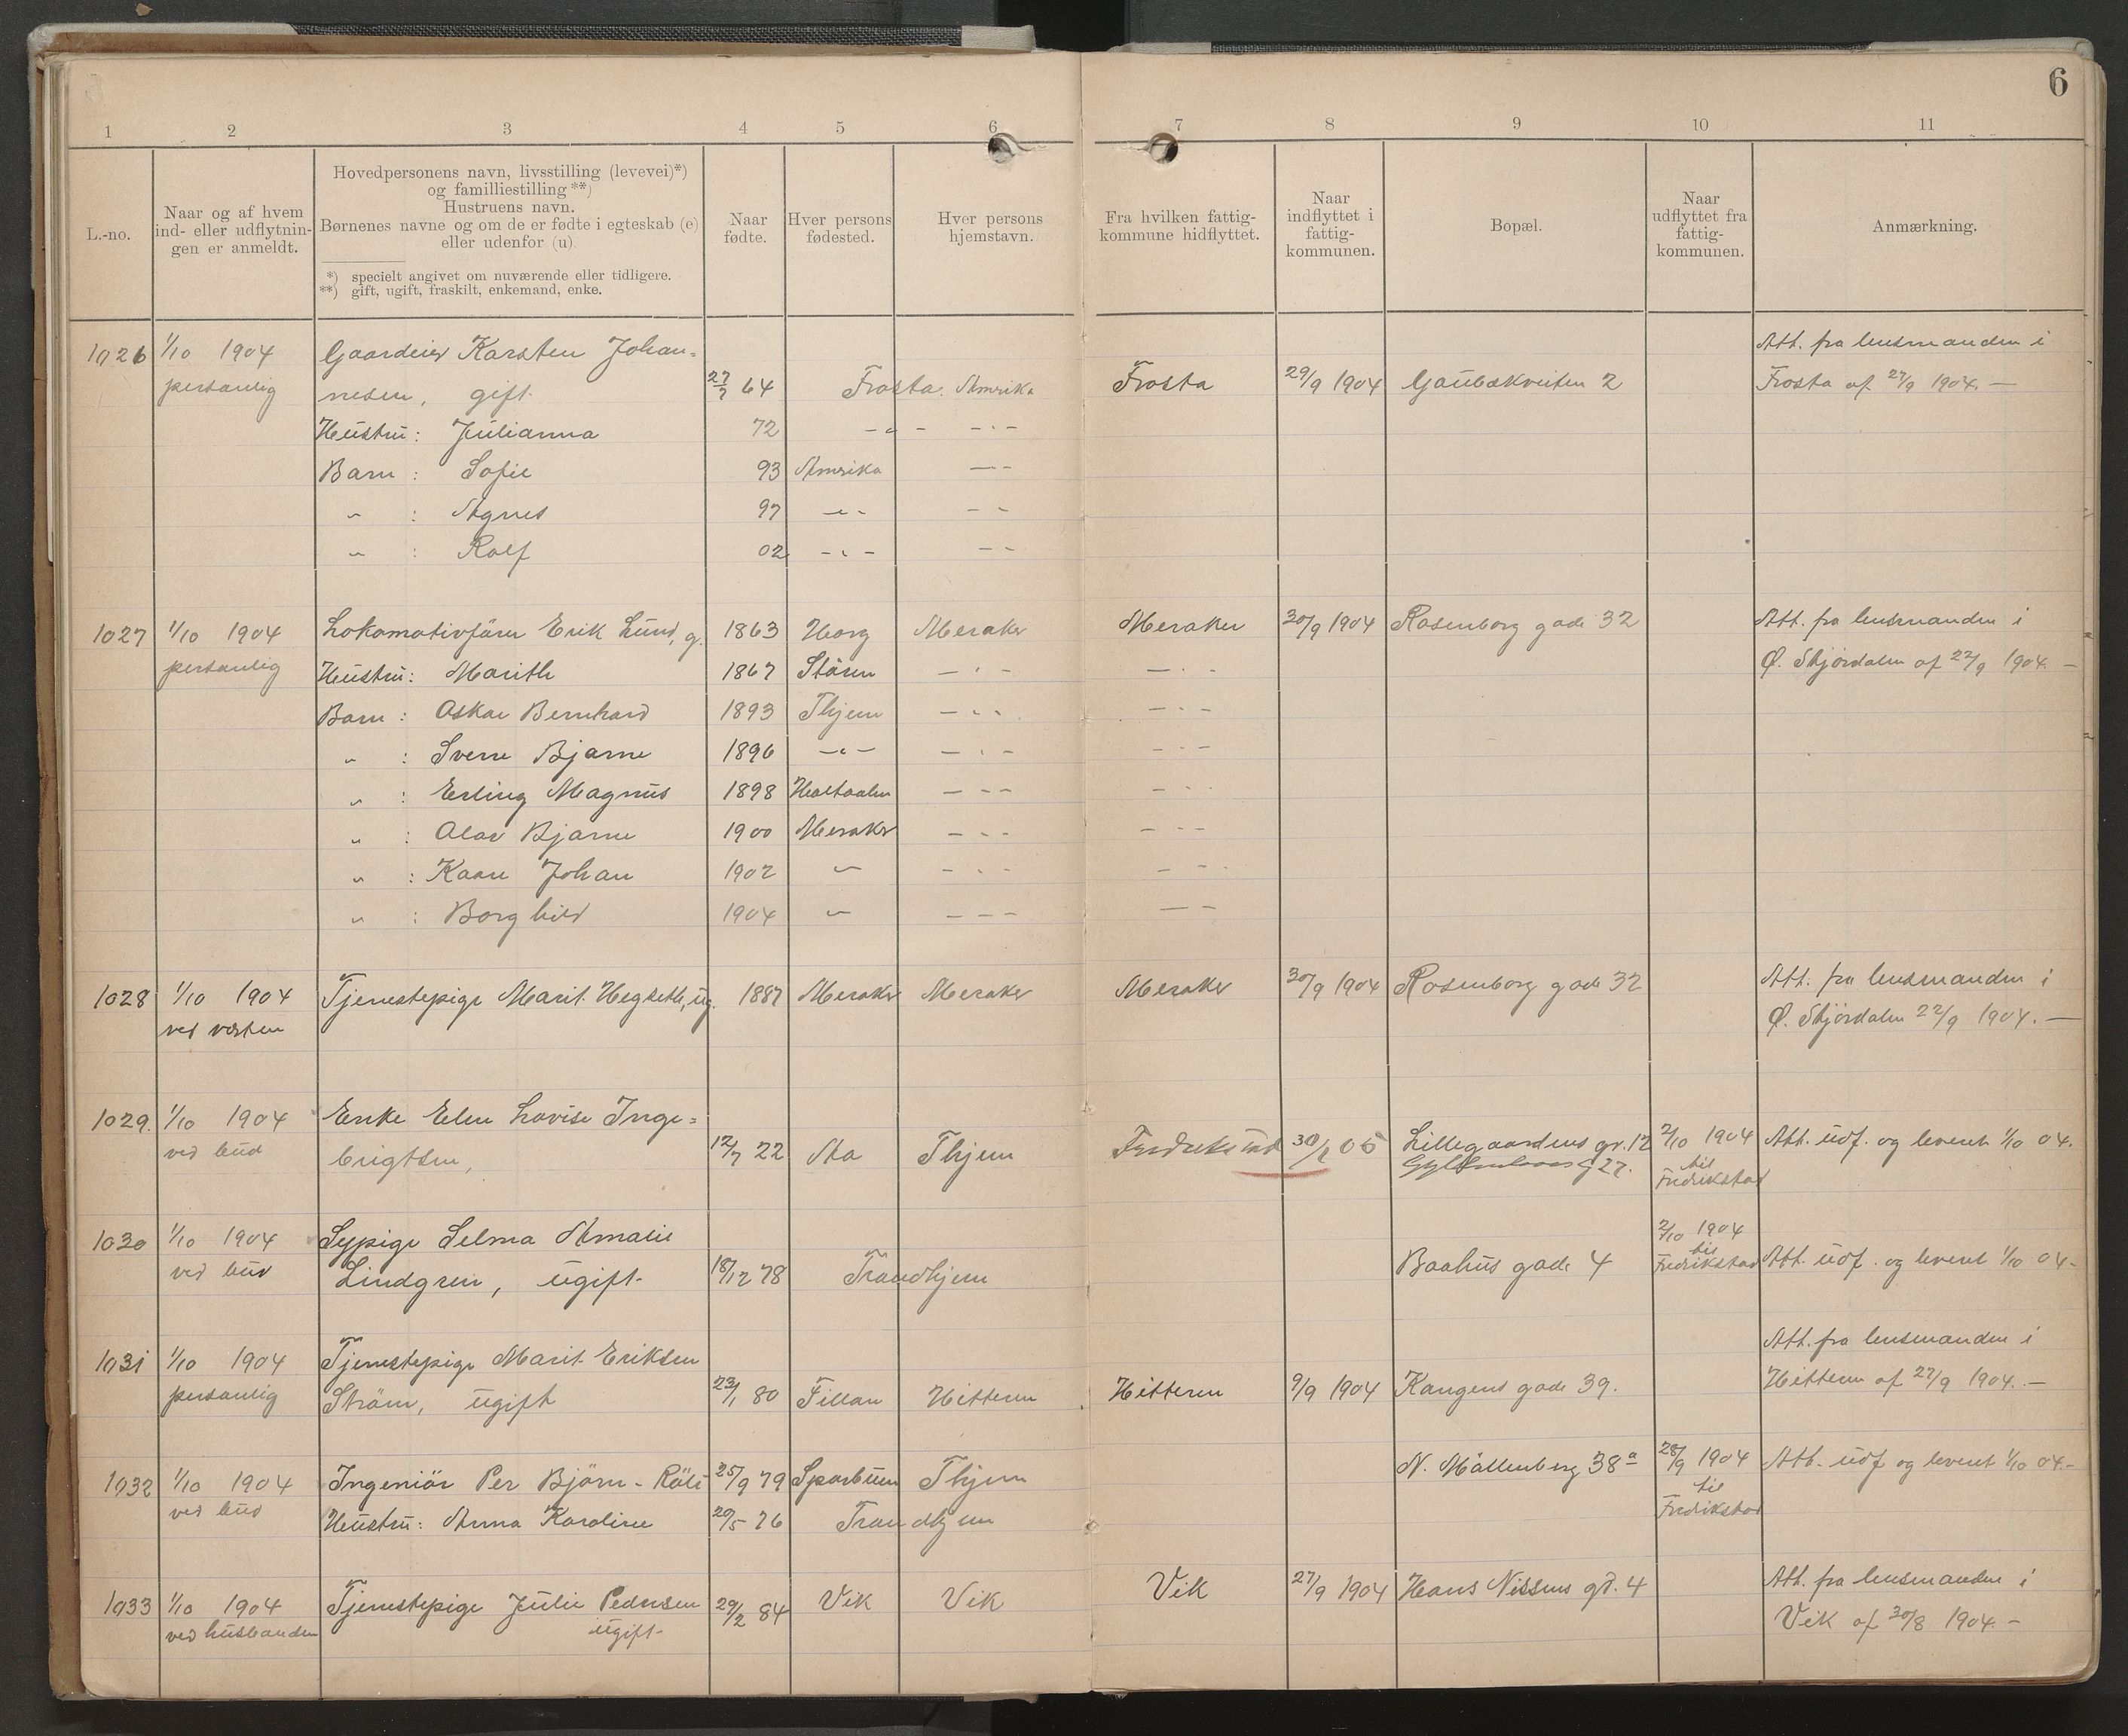 6
1 2 3 4 5 6 7 8 9 10 11
L.-no.
Naar og af hvem
ind- eller udflytnin-
gen er anmeldt.
Hovedpersonens navn, livsstilling (levevei)*)
og familliestilling **)
Hustruens navn.
Børnenes navne og om de er fødte i egteskab (e)
eller udenfor (u).
*) specielt angivet om nuværende eller tidligere.
**) gift, ugift, fraskilt, enkemand, enke.
Naar
fødte.
Hver persons
fødested.
Hver persons
hjemstavn.
Fra hvilken fattig-
kommune hidflyttet.
Naar
indflyttet i
fattig-
kommunen.
Bopæl.
Naar
udflyttet fra
fattig-
kommunen.
Anmærkning.
1026 1/10 1904 Gaardeier Karsten Johan= Att. fra lensmanden i
personlig nesen, gift. 27/7 64 Frosta. Amerika Frosta 29/9 1904 Gaubækveiten 2 Frosta af 27/9 1904. —
Hustru: Julianna 72 - " - - " -
Barn : Sofie 93 Amerika - " -
" : Agnes 97 - " - - " -
" : Rolf 02 - " - - " -
1027 1/10 1904 Lokomotivförer Erik Lund, g. 1863 Horg Meraker Meraker 30/9 1904 Rosenborg gade 32 Att. fra lensmanden i
personlig Hustru: Marith 1867 Stören - " - - " - Ø. Stjördalen af 22/9 1904. —
Barn : Oskar Bernhard 1893 Thjem - " - - " -
" : Sverre Bjarne 1896 - " - - " - - " -
" : Erling Magnus 1898 Holtaalen - " - - " -
" : Olav Bjarne 1900 Meraker - " - - " -
" : Kaare Johan 1902 " - " - - " -
" : Borghild 1904 " - " - - " -
1028 1/10 1904 Tjenestepige Marit Hegseth, ug. 1887 Meraker Meraker Meraker 30/9 1904 Rosenborg gade 32 Att. fra lensmanden i
ved værten Ø. Stjördalen 22/9 1904. —
1029. 1/10 1904 Enke Elen Lovise Inge= 2/10 1904
ved bud brigtsen, 12/7 22 Aa Thjem 05 Lillegaardens gr. 12 Att. udf. og leveret 1/10 04.
27. til
Fredrikstad
1030 1/10 1904 Sypige Selma Amalie 2/10 1904
ved bud Lindgren, ugift 18/12 78 Trondhjem Baahus gade 4 til Fredrikstad Att. udf. og leveret 1/10 04-
1031 1/10 1904 Tjenestepige Marit Eriksen Att. fra lensmanden i
personlig Ström, ugift 23/1 80 Fillan Hitteren Hitteren 9/9 1904 Kongens gade 39. Hitteren af 27/9 1904. —
1032 1/10 1904 Ingeniör Per Björn-Röli 25/9 79 Sparbuen Thjem N. Möllenberg 38a 28/9 1904 Att. udf og leveret 1/10 04.-
ved bud Hustru: Anna Karoline 20/5 76 Trondhjem til
Fredrikstad
1033 1/10 1904 Tjenestepige Julie Pedersen 29/2 84 Vik Vik Vik 27/9 1904 Hans Nissens gd. 4 Att. fra lensmanden i
ved husbonden ugift Vik af 30/8 1904. -